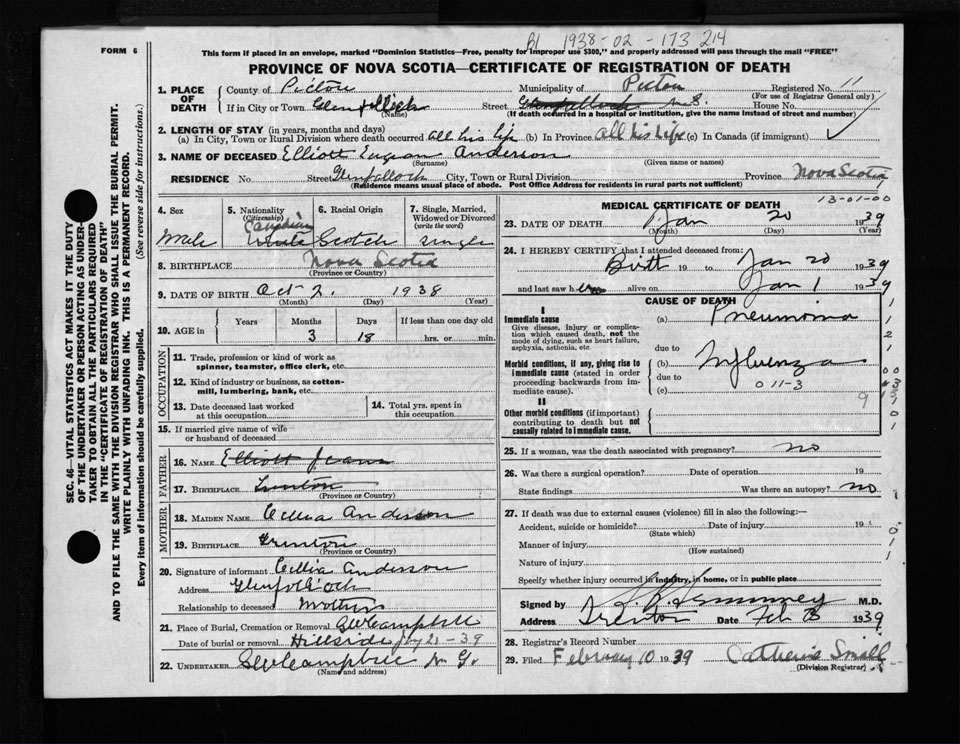 FORM 6
B1 1938-02-173214
This form if placed in an envelope, marked "Dominion Statistics—Free, penalty for improper use $300," and properly addressed will pass through the mail "FREE"
PROVINCE OF NOVA SCOTIA—CERTIFICATE OF REGISTRATION OF DEATH
1. PLACE OF DEATH
County of Pictou Municipality of Pictou Registered No. 11
(For use of Registrar General only)
If in City or Town Street Glenfalloch N.S. House No.
(If death occurred in a hospital or institution, give the name instead of street and number)
2. LENGTH OF STAY (in years, months and days)
(a) In City, Town or Rural Division where death occurred all his life (b) In Province all his life (c) In Canada (if immigrant)
3. NAME OF DECEASED Elliott Anderson
(Surname) (Given name or names)
RESIDENCE No. Street Glenfalloch City, Town or Rural Division Province Nova Scotia
(Residence means usual place of abode. Post Office Address for residents in rural parts not sufficient)
4. Sex Male
5. Nationality (Citizenship) Canadian White
6. Racial Origin Scotch
7. Single, Married, Widowed or Divorced (write the word) single
8. BIRTHPLACE Nova Scotia
(Province or Country)
9. DATE OF BIRTH Oct 2. 1938
(Month) (Day) (Year)
10. AGE in Years Months Days If less than one day old
3 18 hrs. or min.
OCCUPATION
11. Trade, profession or kind of work as spinner, teamster, office clerk, etc.
12. Kind of industry or business, as cotton-mill, lumbering, bank, etc.
13. Date deceased last worked at this occupation
14. Total yrs. spent in this occupation
15. If married give name of wife or husband of deceased
FATHER
16. NAME Elliott
17. BIRTHPLACE
(Province or Country)
MOTHER
18. MAIDEN NAME Cellia Anderson
19. BIRTHPLACE Trenton
(Province or Country)
20. Signature of informant Cellia Anderson
Address
Relationship to deceased Mother
21. Place of Burial, Cremation or Removal
Date of burial or removal Hillside 21-39
22. UNDERTAKER Campbell N.G.
(Name and address)
MEDICAL CERTIFICATE OF DEATH
13-01-00
23. DATE OF DEATH Jan 20 1939
(Month) (Day) (Year)
24. I HEREBY CERTIFY that I attended deceased from:
Birth 19 to Jan 20 1939
and last saw h alive on Jan 1 1939
CAUSE OF DEATH
I
Immediate cause
Give disease, injury or complication which caused death, not the mode of dying, such as heart failure, asphyxia, asthenia, etc.
(a) Pneumonia
due to
Morbid conditions, if any, giving rise to immediate cause (stated in order proceeding backwards from immediate cause).
(b) Influenza
due to
(c) 011-3
II
Other morbid conditions (if important) contributing to death but not causally related to immediate cause.
25. If a woman, was the death associated with pregnancy? no
26. Was there a surgical operation? Date of operation 19
State findings Was there an autopsy? no
27. If death was due to external causes (violence) fill in also the following:—
Accident, suicide or homicide? Date of injury 193
(State which)
Manner of injury
(How sustained)
Nature of injury
Specify whether injury occurred in industry, in home, or in public place
Signed by M.D.
Address Trenton Date Feb 8 1939
28. Registrar's Record Number
29. Filed February 10 1939 Catherine Small
(Division Registrar)
SEC. 46—VITAL STATISTICS ACT MAKES IT THE DUTY OF THE UNDERTAKER OR PERSON ACTING AS UNDERTAKER TO OBTAIN ALL THE PARTICULARS REQUIRED IN THE "CERTIFICATE OF REGISTRATION OF DEATH" AND TO FILE THE SAME WITH THE DIVISION REGISTRAR WHO SHALL ISSUE THE BURIAL PERMIT.
WRITE PLAINLY WITH UNFADING INK. THIS IS A PERMANENT RECORD.
Every item of information should be carefully supplied. (See reverse side for instructions.)